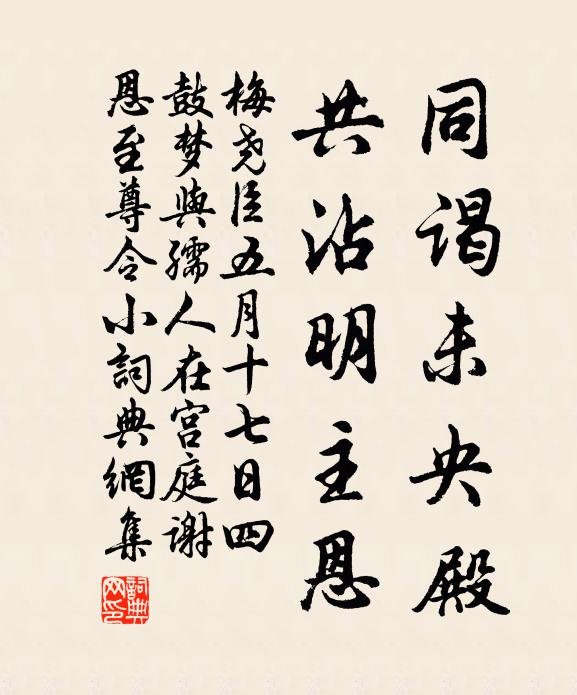 同谒未央殿
共沾明主恩
梅尧臣五月十七日四
鼓梦與孺人在宫庭谢
恩至尊令小詞典網集
詞典网印